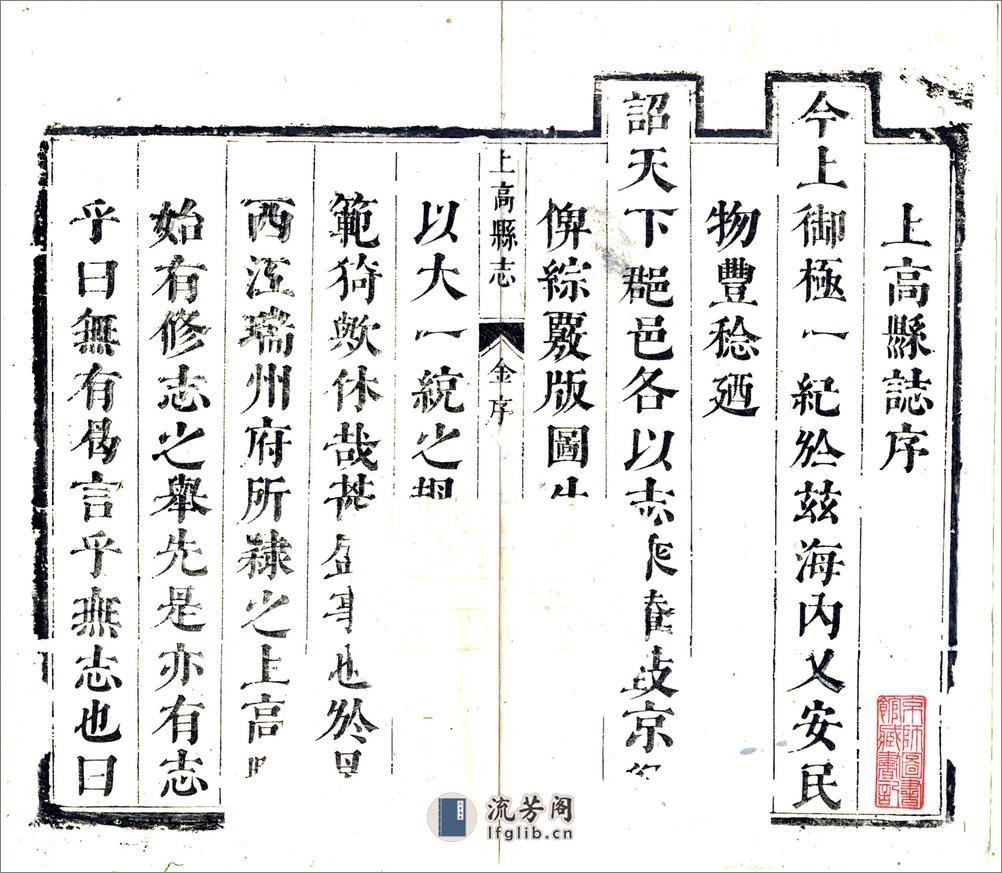 上高縣誌序
今上御極一紀於茲海內乂安民
物豐稔廼
詔天下郡邑各以志來彙 京
俾綜覈版圖
以大一統之規
範猗歟休哉甚盛事也於是
西江瑞州府所隸之上高
始有修志之舉先是亦有志
乎曰無有曷言乎無志也曰
上高縣志
金序
京師圖書館藏書記
流芳阁
lfglib.cn